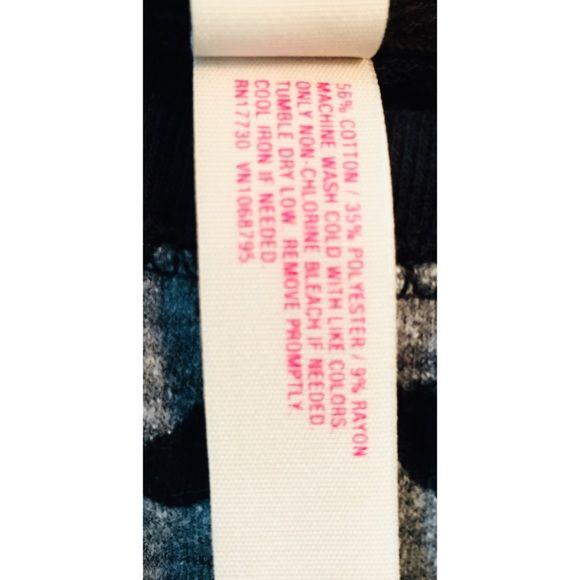 56% COTTON / 35% POLYESTER / 9% RAYON
MACHINE WASH COLD WITH LIKE COLORS.
ONLY NON-CHLORINE BLEACH IF NEEDED.
TUMBLE DRY LOW. REMOVE PROMPTLY.
COOL IRON IF NEEDED.
RN17730 VN1068795